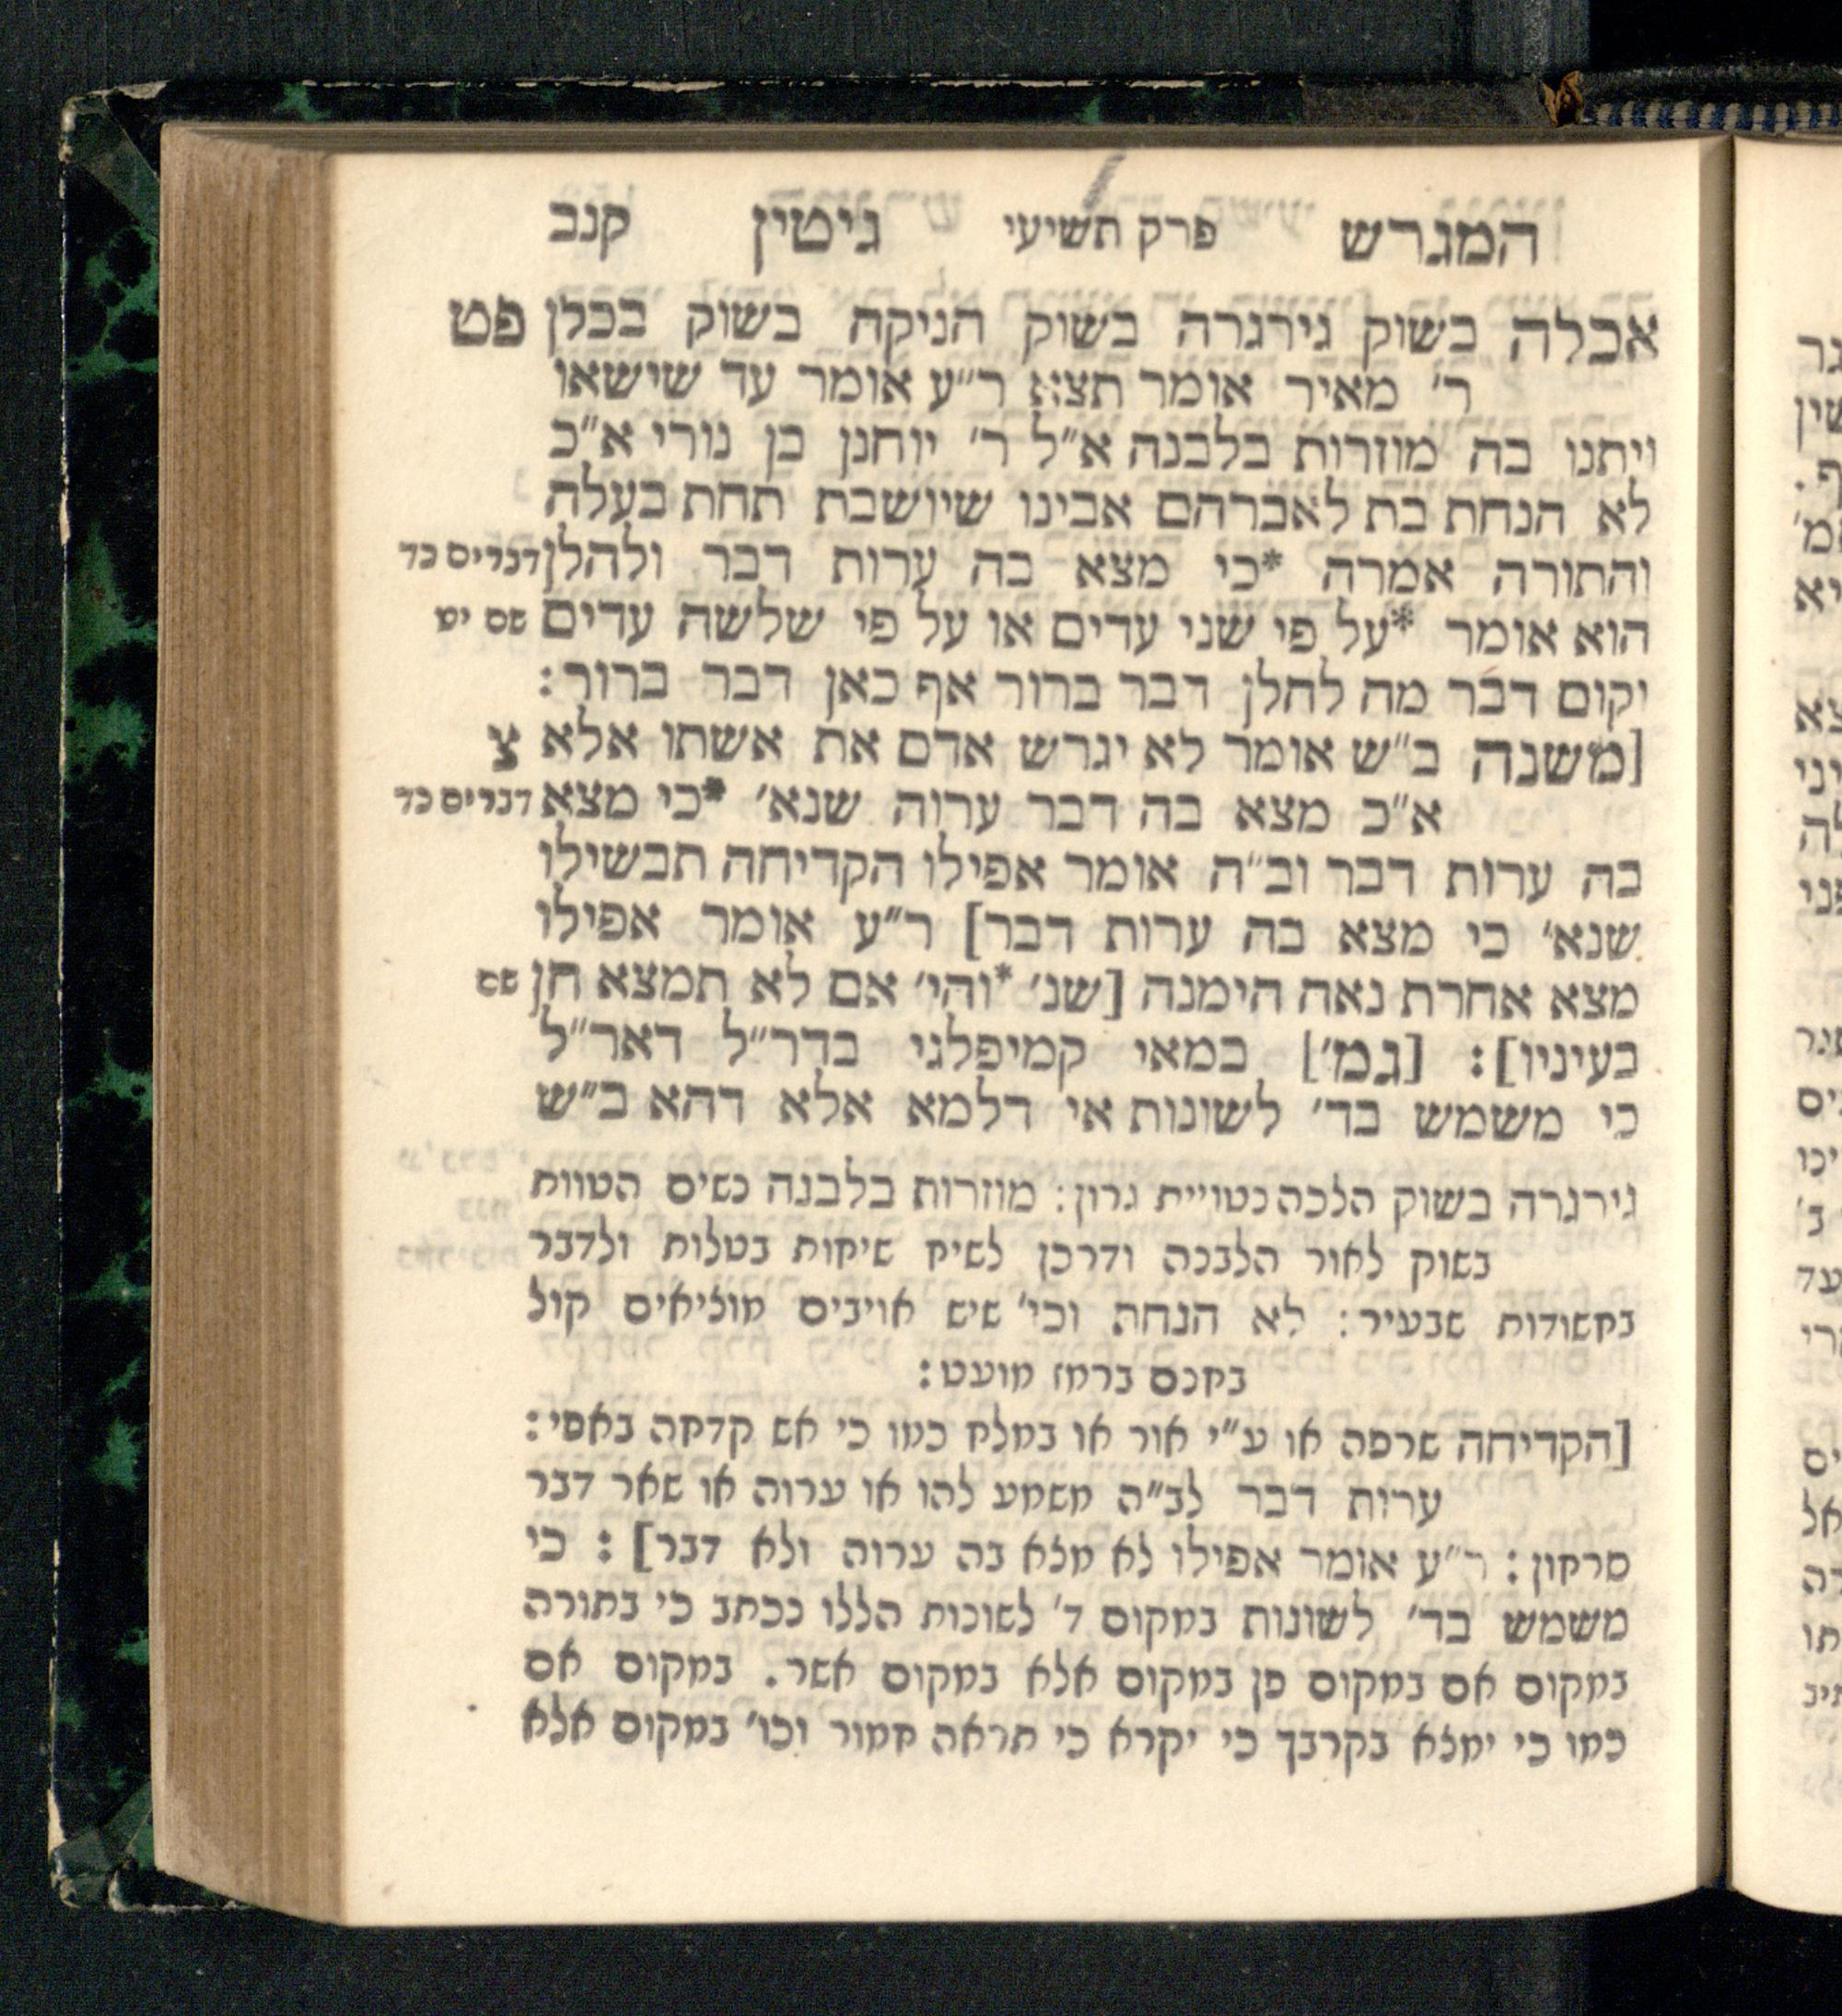 המגרש פרק תשיעי גיטין קנב
אכלה בשוק גירגרה בשוק הניקה בשוק בכלן פט
ר׳ מאיר אומר תצא ר״ע אומר עד שישאו
ויתנו בה מוזרות בלבנה א״ל ר׳ יוחנן בן נורי א״כ
לא הנחת בת לאברהם אבינו שיושבת תחת בעלה
והתורה אמרה *כי מצא בה ערות דבר ולהלן דברים כד
הוא אומר *על פי שני עדים או על פי שלשה עדים שם יט
יקום דבר מה להלן דבר ברור אף כאן דבר ברור:
[משנה ב״ש אומר לא יגרש אדם את אשתו אלא צ
א״כ מצא בה דבר ערוה שנא׳ *כי מצא דברים כד
בה ערות דבר וב״ה אומר אפילו הקדיחה תבשילו
שנא׳ כי מצא בה ערות דבר] ר״ע אומר אפילו
מצא אחרת נאה הימנה [שנ׳ *והי׳ אם לא תמצא חן שם
בעיניו]: [גמ׳] במאי קמיפלגי בדר״ל דאר״ל
כי משמש בד׳ לשונות אי דלמא אלא דהא ב״ש
גירגרה בשוק הלכה כטויית גרון: מוזרות בלבנה נשים הטוות
בשוק לאור הלבנה ודרכן לשיח שיחות בטלות ולדבר
בחשודות שבעיר: לא הנחת וכי׳ שיש אויבים מוציאים קול
בחנם ברמז מועט:
[הקדיחה שרפה או ע״י אור או במלח כמו כי אש קדחה באפי:
ערות דבר לב״ה משמע להו או ערוה או שאר דבר
סרחון: ר״ע אומר אפילו לא מצא בה ערוה ולא דבר]: כי
משמש בד׳ לשונות במקום ד׳ לשונות הללו נכתב כי בתורה
במקום אם במקום פן במקום אלא במקום אשר. במקום אם
כמו כי ימצא בקרבך כי יקרא כי תראה חמור וכו׳ במקום אלא